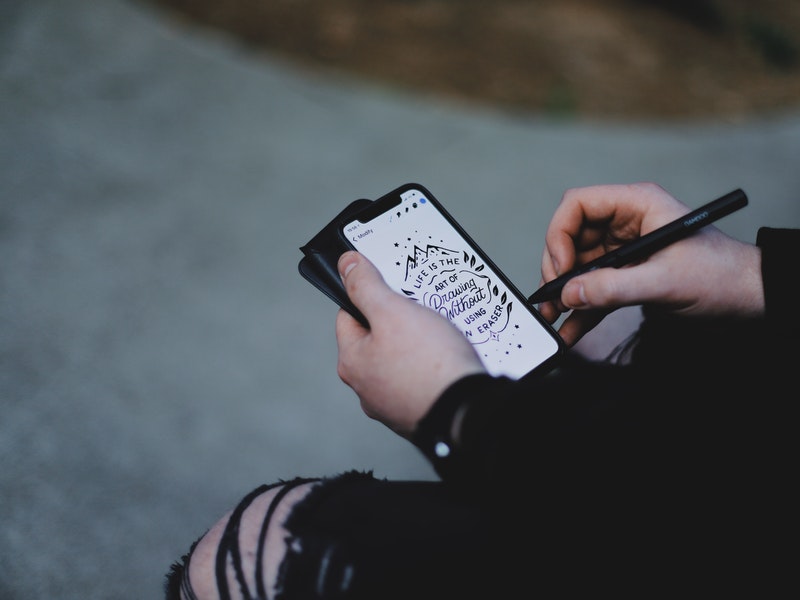 Modify
LIFE IS THE
ART OF
Drawing
Without
USING
N ERASER
BAMBOO